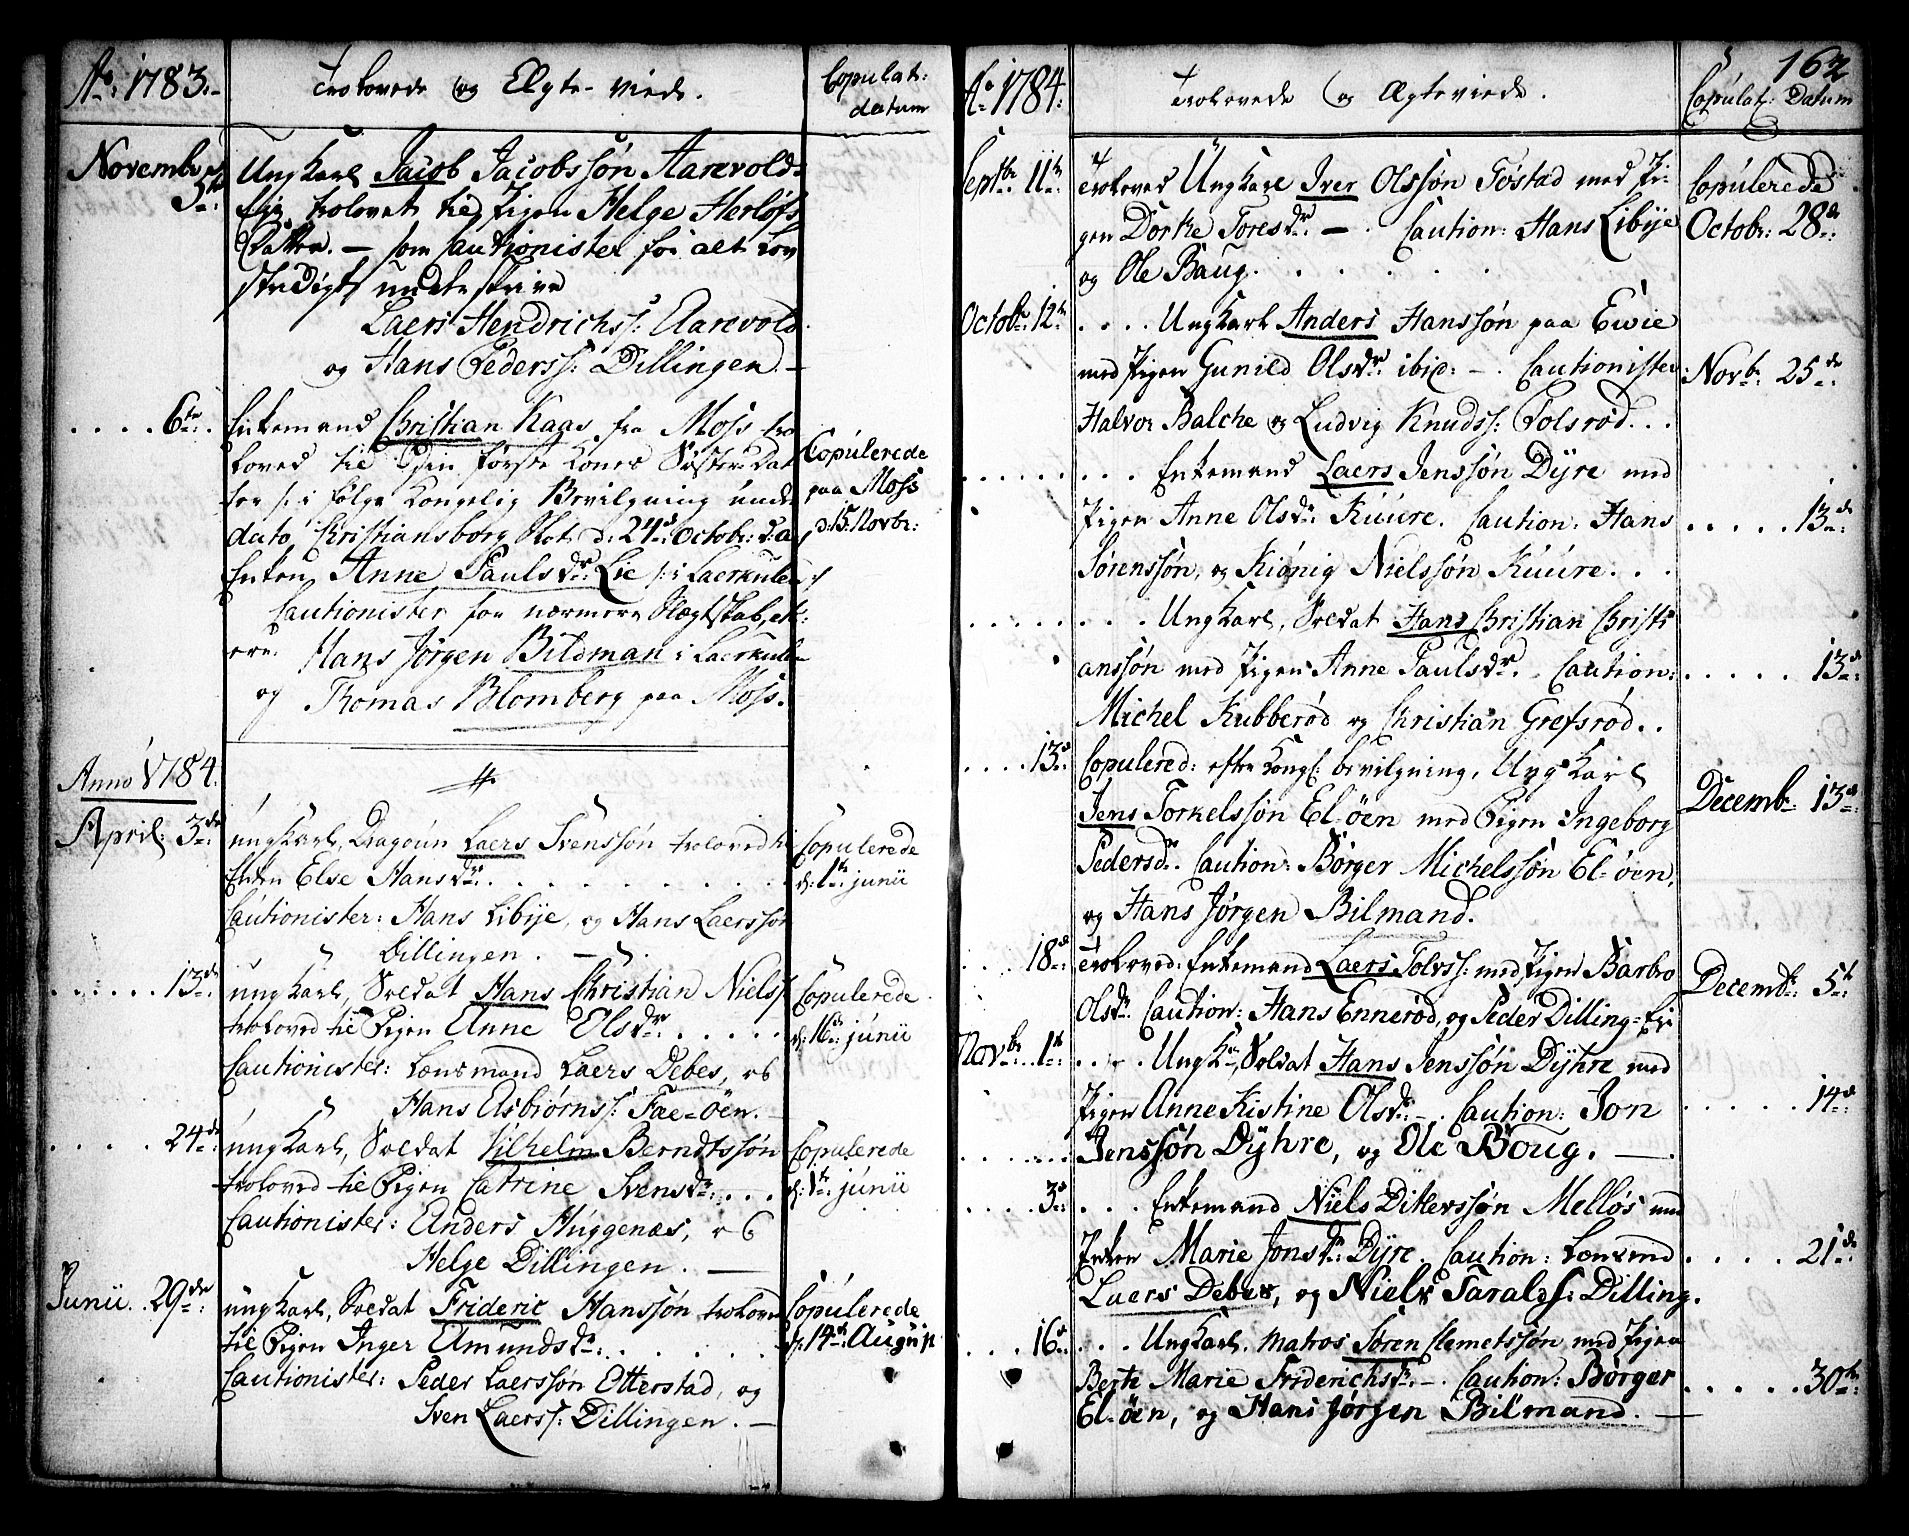 Ao. 1783.
Trolovede og Ægte-viede.
Copulat:
datum
Novembr.
5te
Ungkarl Jacob Jacobssøn Aarevold-
Eje, trolovet til Pigen Helge Herlofs
Datter. — som Cautionister for alt lov
stridigt underskrive
Laers Hendrichss: Aarevold.
og Hans Pederss: Dillingen. —
. . . . 6te.
Enkemand Christian Kaas fra Moss tro
loved til Sin første Kones Søster Dat
ter /: i følge Kongelig Bevilgning under
dato Christiansborg Slot d: 24de Octobr: d: a.
Enken Anne Paulsdr. Lie /: i Laerkulen :/
Copulerede
paa Moss
d: 15. Novbr:
Cautionister for nærmere Slægtskab, etc:
ere:
Hans Jørgen Bildman i Laerkulen
og Thomas Blomberg paa Moss.
Anno 1784.
April: 3de
ungKarl, Dragoun Laers Svenssøn troloved til
Enken Else Hansdr. . . . . . . .
Cautionister: Hans Libye, og Hans Laerssøn
Dillingen. —
Copulerede
d: 1te junii
. . . . . . 13de
ungKarl, Soldat Hans Christian Niels/:
troloved til Pigen Anne Olsdr. . . . . .
Cautionister: Lænsmand Laers Debes, og
Hans Asbiørns/: Fae-öen. —
Copulerede
d: 16de junii
. . . . 24de
ungKarl, Soldat Vilhelm Berndtssøn
troloved til Pigen Catrine Svensdr. . . .
Cautionister: Anders Huggenæs, og
Helge Dillingen. —
Copulerede
d: 1te junii
Junii. 29de
ungKarl, Soldat Frideric Hanssøn trolovet
til Pigen Inger Amundsdr: . . . . .
Cautionister: Peder Laerssøn Otterstad, og
Sven Laers/: Dillingen. —
Copulerede
d: 14de August
Ao 1784.
Trolovede og Ægteviede.
162
Copulat: Datum
Septbr. 11te
Troloved Ungkarl Iver Olssøn Tostad med Pi-
gen Dorke Toresdr. — . Caution: Hans Libye
og Ole Baug. . . . . . .
Copulerede
Octobr: 28de
Octobr. 12te
. . . . Ungkarl Anders Hanssøn paa Ewie
med Pigen Gunild Olsdr. ibid: — . Cautionister
Halvor Balche og Ludvig Knuds/: Tolsrød. . .
Novbr. 25de
. . . Enkemand Laers Jenssøn Dyre med
Pigen Anne Olsdr. Kuure. Caution: Hans
Sørenssøn, og Kiønig Nielssøn Kuure. . .
. . . . . 13de
. . . Ungkarl, Soldat Hans Christian Christi
anssøn med Pigen Anne Paulsdr. Caution:
Michel Kubberød og Christian Grefsrød. .
. . . . . 13de
. . . . 13de
Copulered: efter Kongl: bevilgning, Ungkarl
Jens Torkelssøn El-öen med Pigen Ingeborg
Pedersdr. Caution: Børger Michelssøn El-öen,
og Hans Jørgen Bilmand.
Decembr. 13de
. . . 18de
Troloved: Enkemand Laers Tolvs/: med Pigen Barbro
Olsdr. Caution: Hans Ennerød, og Peder Dilling-Eje
Decembr. 5te
Novbr. 1te
. . . . Ungk: Soldat Hans Jenssøn Dyhre med
Pigen Anne Kistine Olsdr. — . Caution: Jon
Jenssøn Dyhre, og Ole Boug. —
. . . . . . 14de
. . . . 3de
. . . Enkemand Niels Ditlevssøn Melløs med
Enken Marie Jonsdr. Dyre. Caution: Lænsmd
Laers Debes, og Niels Taralds: Dilling.
. . . . 21de
. . . 16de
. . . Ungkarl. Matros Søren Clemetssøn med Pigen
Berte Marie Friderichsdr. — . Caution: Børger
El-öen, og Hans Jørgen Bilmand. —
. . . . . 30te